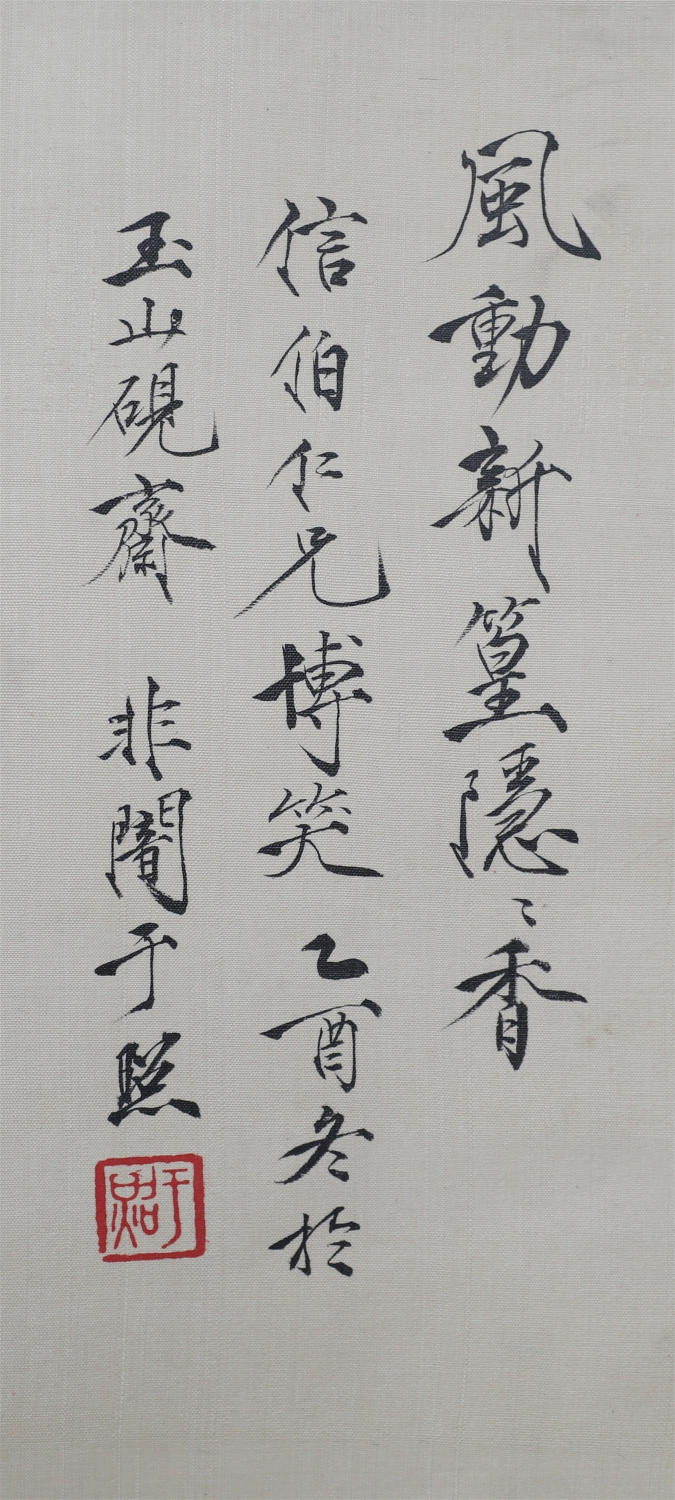 風動新篁隱〻香
信伯仁兄博笑 乙酉冬於
玉山硯齋 非闇于照
于照